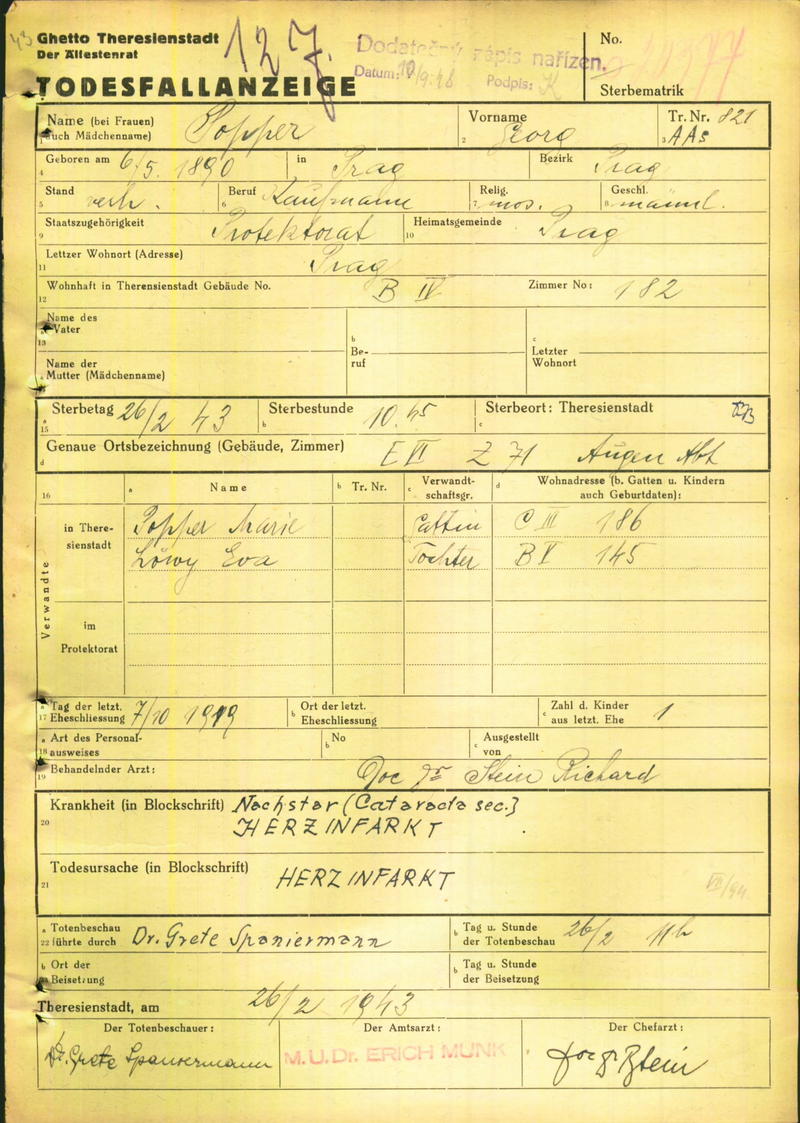 43
Ghetto Theresienstadt
Der Ältestenrat
127.
Dodatečný zápis nařízen.
Datum: 10/9.48 Podpis: K
No.
TODESFALLANZEIGE
Sterbematrik
Name (bei Frauen) auch Mädchenname) Popper
Vorname Georg
Tr. Nr. 821 AAs
Geboren am 6/5. 1890 in Prag Bezirk Prag
Stand verh. Beruf Kaufmann Relig. mos. Geschl. männl.
Staatszugehörigkeit Protektorat Heimatsgemeinde Prag
Lettzer Wohnort (Adresse) Prag
Wohnhaft in Therensienstadt Gebäude No. B IV Zimmer No: 182
Name des Vater
Be-ruf
Letzter Wohnort
Name der Mutter (Mädchenname)
Sterbetag 26/2 43 Sterbestunde 10.45 Sterbeort: Theresienstadt
Genaue Ortsbezeichnung (Gebäude, Zimmer) E VI Z 71 Augen Abt
16 a Name b Tr. Nr. c Verwandt-schaftsgr. d Wohnadresse (b. Gatten u. Kindern auch Geburtdaten):
Verwandte
in There-sienstadt
Popper Marie Gattin C III 186
Löwy Eva Tochter B V 145
im Protektorat
17 a Tag der letzt. Eheschliessung 7/10 1919 b Ort der letzt. Eheschliessung c Zahl d. Kinder aus letzt. Ehe 1
18 a Art des Personal-ausweises b No c Ausgestellt von
19 Behandelnder Arzt: Doc Dr Stein Richard
20 Krankheit (in Blockschrift) Nachstar (Cataracta sec.)
HERZINFARKT
21 Todesursache (in Blockschrift) HERZINFARKT
22 a Totenbeschau führte durch Dr. Grete Spaniermann b Tag u. Stunde der Totenbeschau 26/2 11h
b Ort der Beisetzung b Tag u. Stunde der Beisetzung
Theresienstadt, am 26/2 1943
Der Totenbeschauer: Der Amtsarzt: Der Chefarzt:
Dr. Grete Spaniermann M.U.Dr. ERICH MUNK Doc Dr RStein